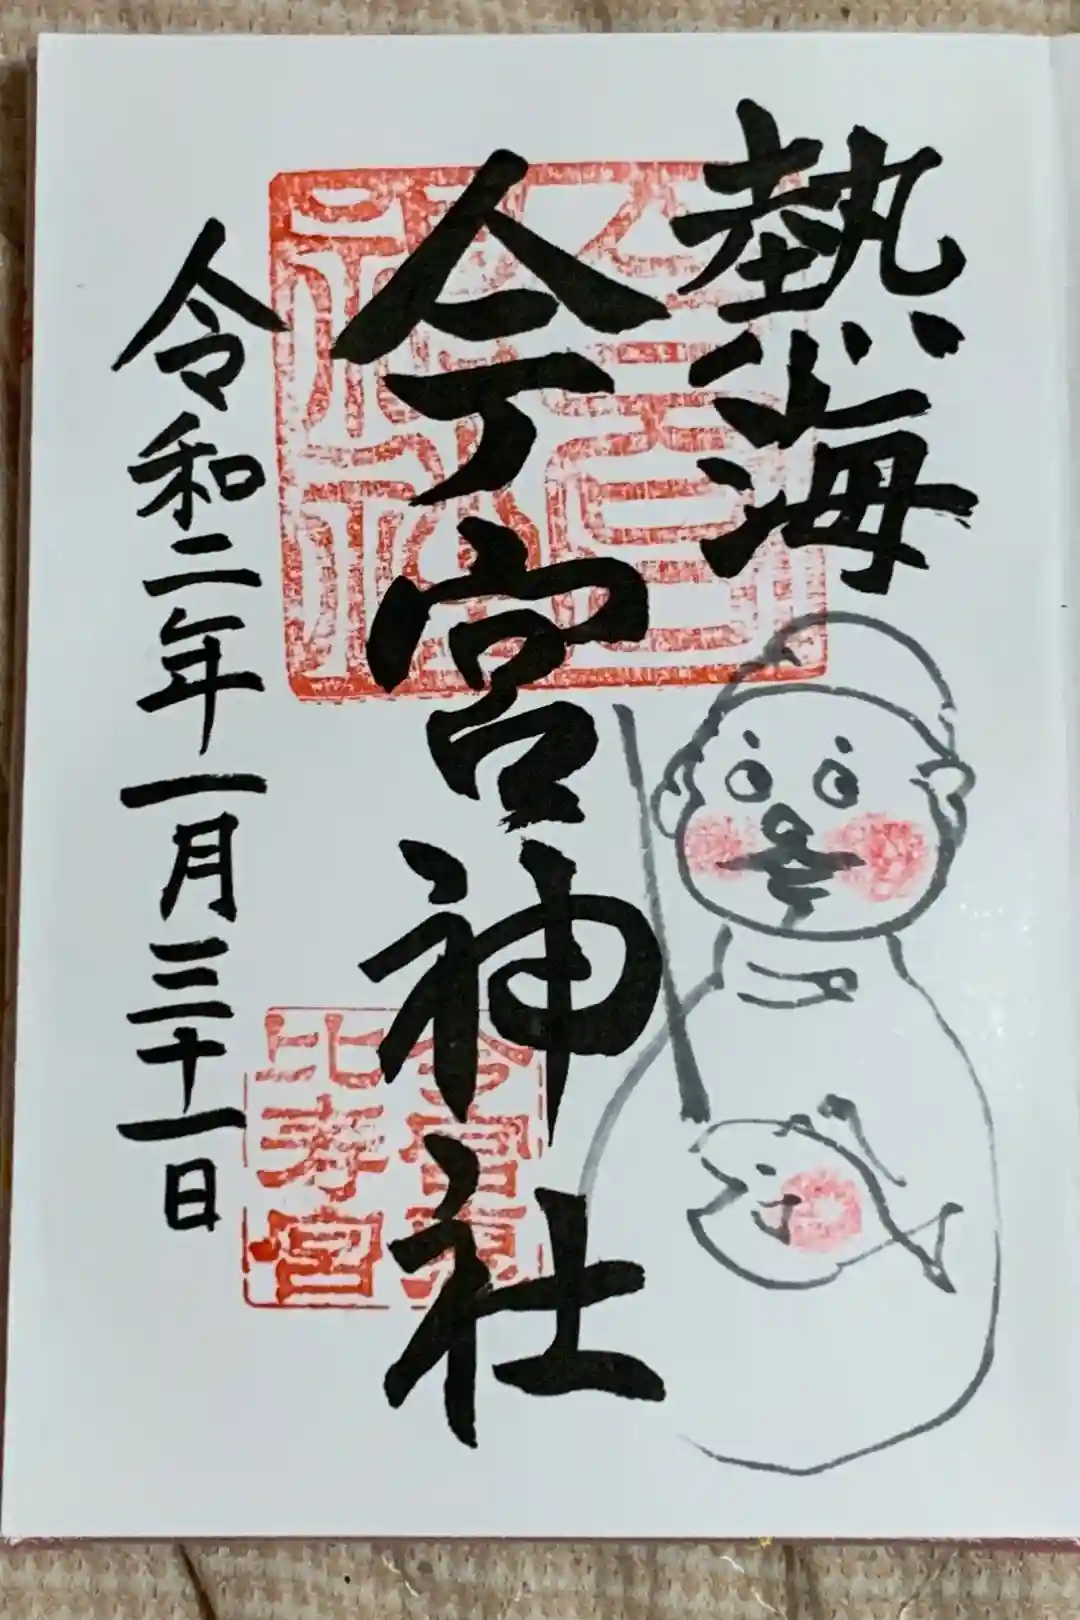 熱海
今宮神社
令和二年一月三十一日
今宮神社
今宮
比寿宮